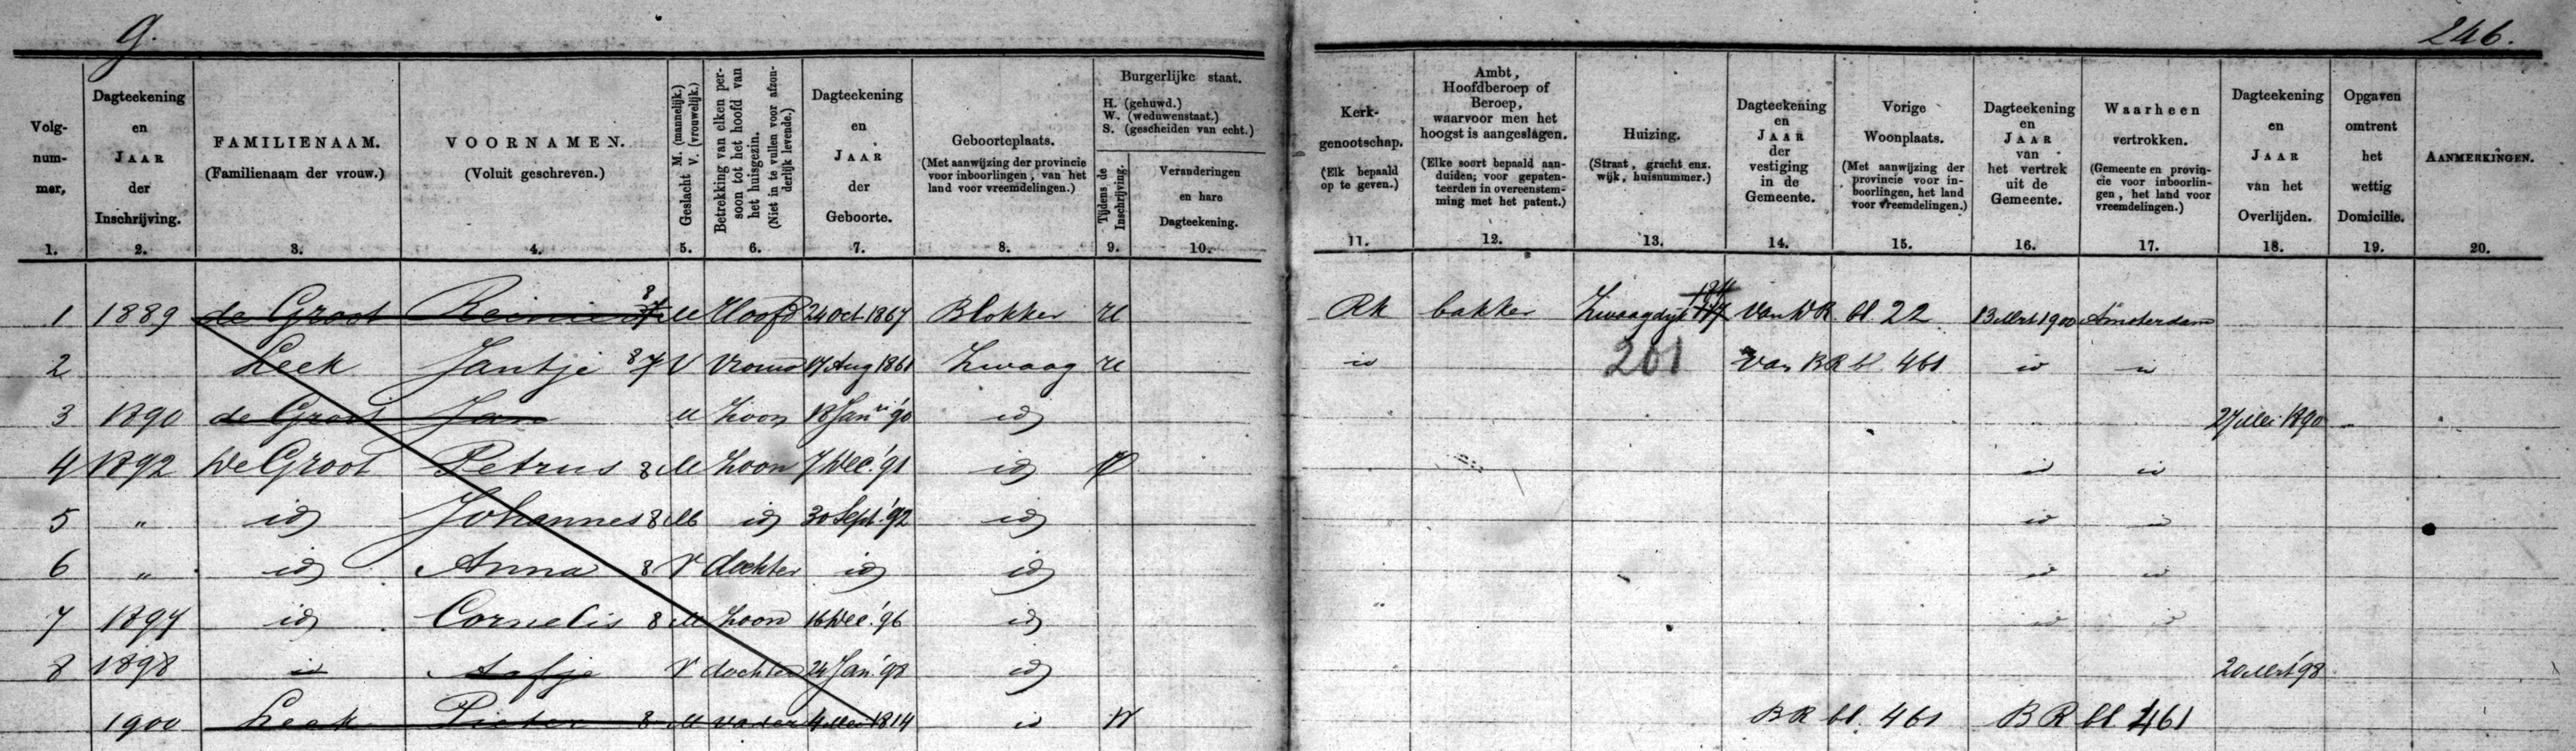 g.
246.
Volgnummer, 1. Dagteekening en JAAR der Inschrijving. 2. FAMILIENAAM. (Familienaam der vrouw.) 3. VOORNAMEN. (Voluit geschreven.) 4. Geslacht M. (mannelijk.) V. (vrouwelijk.) 5. Betrekking van elken persoon tot het hoofd van het huisgezin. (Niet in te vullen voor afzonderlijk levende.) 6. Dagteekening en JAAR der Geboorte. 7. Geboorteplaats. (Met aanwijzing der provincie voor inboorlingen, van het land voor vreemdelingen.) 8. Burgerlijke staat. H. (gehuwd.) W. (weduwenstaat.) S. (gescheiden van echt.) Tijdens de Inschrijving. 9. Veranderingen en hare Dagteekening. 10.
Kerkgenootschap. (Elk bepaald op te geven.) 11. Ambt, Hoofdberoep of Beroep, waarvoor men het hoogst is aangeslagen. (Elke soort bepaald aanduiden; voor gepatenteerden in overeenstemming met het patent.) 12. Huizing. (Straat, gracht enz. wijk, huisnummer.) 13. Dagteekening en JAAR der vestiging in de Gemeente. 14. Vorige Woonplaats. (Met aanwijzing der provincie voor inboorlingen, het land voor vreemdelingen.) 15. Dagteekening en JAAR van het vertrek uit de Gemeente. 16. Waarheen vertrokken. (Gemeente en provincie voor inboorlingen, het land voor vreemdelingen.) 17. Dagteekening en JAAR van het Overlijden. 18. Opgaven omtrent het wettig Domicilie. 19. AANMERKINGEN. 20.
1 1889 de Groot M Hoofd 24 Oct 1867 Blokker H Rk bakker Zwaagdijk Van W R. bl. 22 13 Mrt 1900 Amsterdam
2 Leek Jantje 8 V Vrouw 17 Aug 1861 Zwaag H id 201 Van B R bl. 461 id id
3 1890 de Groot Jan M Zoon 18 Jan '90 id 27 Mei 1890
4 1892 De Groot Petrus 8 M Zoon 7 Dec. '91 id id id
5 " id Johannes 8 M id 30 Sept. '92 id id id
6 " id Anna 8 V dochter id id id id
7 1897 id Cornelis 8 M Zoon 16 Dec. '96 id id id
8 1898 id Aafje V dochter 24 Jan. '98 id 20 Mrt '98
1900 Leek Pieter 8 M vader 4 Mei 1814 id W B R bl. 461 B R bl. 461